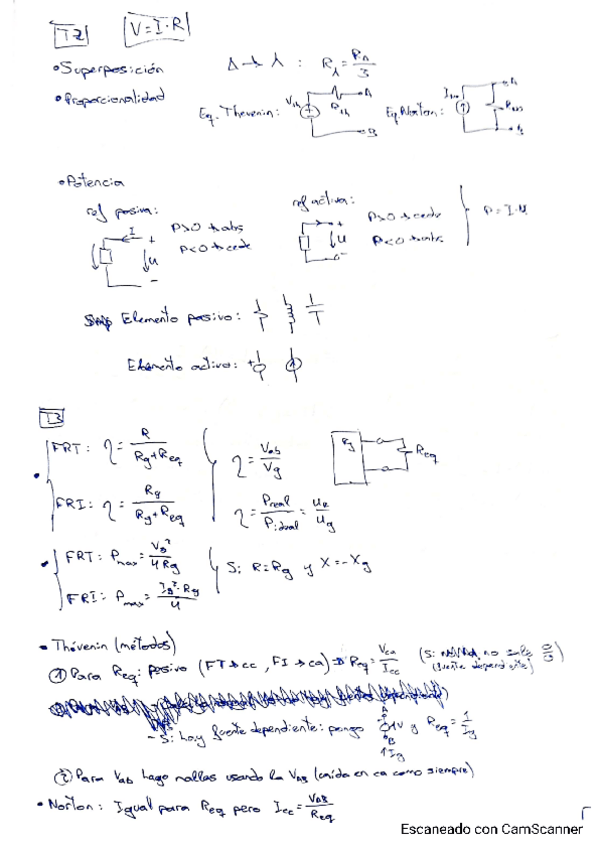 T2 V=I·R
• Superposición Δ→λ : Rλ = RΔ/3
• Proporcionalidad Eq. Thevenin: Vth Rth A B Eq. Norton: A B
• Potencia
ref pasiva: I + U - P>0 → abs P<0 → cede
ref activa: + U - P>0 → cede P<0 → abs P=I·U
Elemento pasivo:
Elemento activo: +
T3
• FRT: η = R/(Rg+Req) η = Vab/Vg Rg Req
FRI: η = Rg/(Rg+Req) η = Preal/Pideal = UR/Ug
• FRT: Pmax = Vg²/4Rg Si R=Rg y X=-Xg
FRI: Pmax = Ig²·Rg/4
• Thévenin (métodos)
① Para Req: pasivo (FT→cc, FI→ca) → Req = Vca/Icc (Si no sale 0/0) (fuente dependiente)
- Si hay fuente dependiente: pongo A 1V B y Req = 1/Ig
↑Ig
② Para Vab hago mallas usando la VAB (caída en ca como siempre)
• Norton: Igual para Req pero Icc = VAB/Req
Escaneado con CamScanner